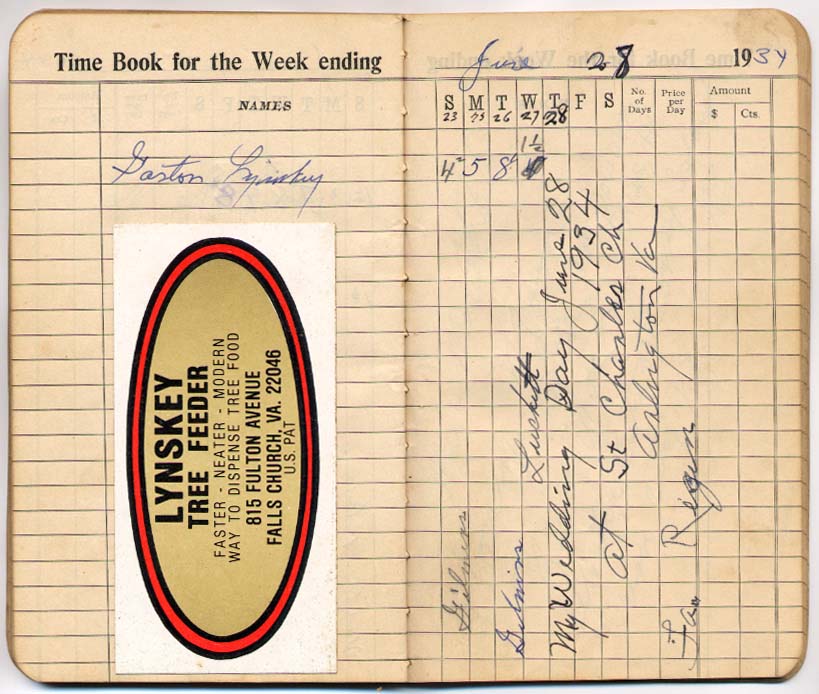 Time Book for the Week ending
NAMES
Gaston Lynskey
LYNSKEY
TREE FEEDER
FASTER - NEATER - MODERN
WAY TO DISPENSE TREE FOOD
815 FULTON AVENUE
FALLS CHURCH, VA. 22046
U.S. PAT
June 28 1934
S M T W T F S No. of Days Price per Day Amount
$ Cts.
23 25 26 27 28
1½
4 5 8
Gilmins
Gilmins Luckett
My Wedding Day June 28
1934
at St Charles Ch
Arlington Va
Regin